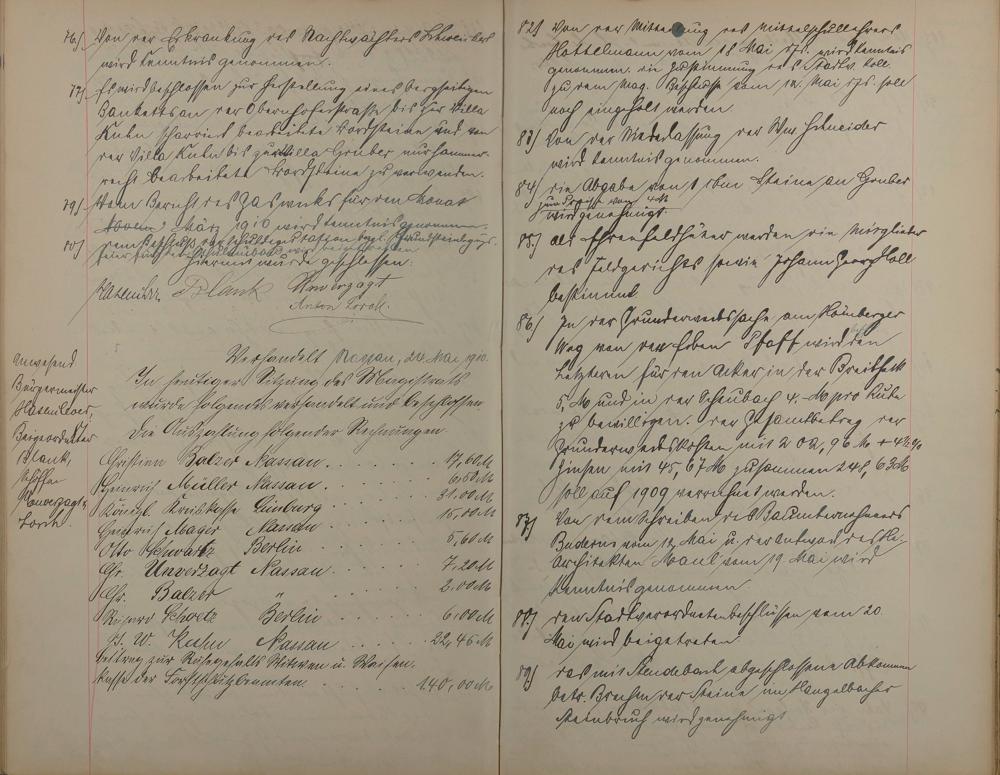 76) Von der Erkrankung des Nachtwächters
wird Kenntnis genommen.
77) Es wird beschlossen zur Herstellung eines bergseitigen
Banketts an der Obernhoferstrasse bis zur Villa
Kuhn scharriert bearbeitete Bordsteine und von
der Villa Kuhn bis zur Villa Gruber nur hammer-
recht bearbeitete Bordsteine zu verwenden.
79) Vom Bericht des Gaswerks für den Monat
März 1910 wird Kenntnis genommen.
80) Dem Beschluss der Schuldeputation bezl. Grundsteinlegungs-
feier für
Hiermit wurde geschlossen.
Hasenclever Blank Unverzagt
Anton Lorch.
Verhandelt Nassau, 24. Mai 1910.
Anwesend
Bürgermeister
Hasenclever,
Beigeordneter
Blank,
Schöffen
Unverzagt,
Lorch.
In heutiger Sitzung des Magistrats
wurde folgendes verhandelt und beschlossen
Die Auszahlung folgender Rechnungen
Christian Balzer Nassau . . . . . . 17,60 M
Heinrich Müller Nassau . . . . . . 6.60 M
Königl. Kreiskasse Limburg . . . . . . 31.00 M
Heinrich Mager Nassau . . . . . . 15,00 M
Otto Schwartz Berlin . . . . . . 5,60 M
Chr. Unverzagt Nassau . . . . . . 7.20 M
Chr. Balzer " . . . . . . 2.00 M
Richard Schoetz Berlin . . . . . . 6.00 M
J. W. Kuhn Nassau . . . . . . 22,45 M
Beitrag zur Ruhegehalts Witwen u. Waisen-
kasse der Forstschutzbeamten . . . . . . 140,00 M
82) Von der Mitteilung des Mittelschullehrers
Hottelmann vom 18 Mai djs. wird Kenntnis
genommen. die Zustimmung des Stadtv. Koll.
zu dem Mag. Beschlusse vom Mai djs. soll
noch eingeholt werden.
83) Von der Niederlassung der Wwe Schneider
wird Kenntnis genommen.
84) Die Abgabe von 1 cbm Steine an Gruber
zum Preise von 4 M
wird genehmigt.
85) Als Ehrenfeldhüter werden die Mitglieder
des Feldgerichts sowie Johann Georg Holl
bestimmt
86) In der Grunderwerbssache am Hömberger
Weg von den Erben Pfaff wird den
Letzteren für den Acker in der Breitheck
5 M und in der Scheubach 4. M pro Rute
zu bewilligen. Der Gesamtbetrag der
Grunderwerbskosten mit 202,96 M + 4½%
Zinsen mit 45,67 M zusammen 248,63 M
soll auf 1909 verrechnet werden.
87) Von dem Schreiben des Bauunternehmers
Buderus vom 12. Mai u. der Antwort des
Architekten Mäul vom 19. Mai wird
Kenntnis genommen
88) Den Stadtverordnetenbeschlüssen vom 20
Mai wird beigetreten.
89) Das mit Stendebach abgeschlossene Abkommen
betr. Brechen der Steine im Hangelbacher
Steinbruch wird genehmigt